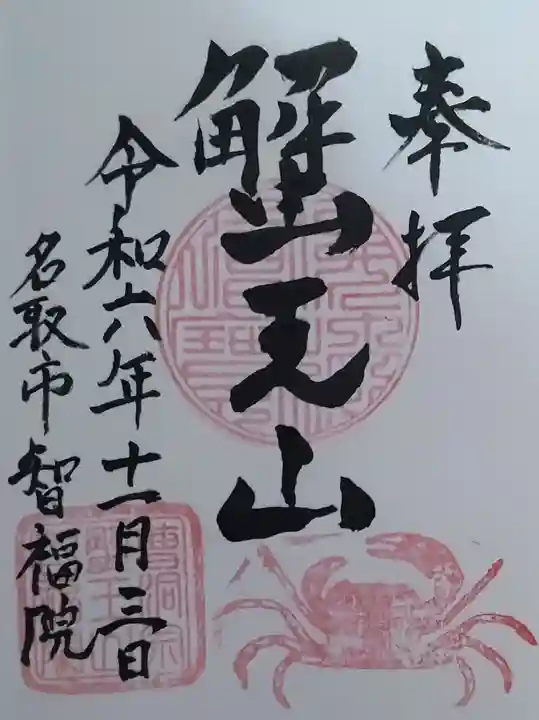 奉拝
蟹王山
令和六年十一月三日
名取市智福院